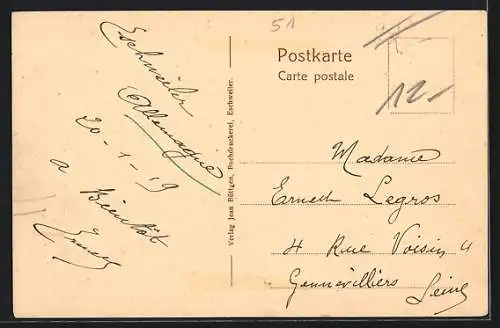 51
Postkarte
Carte postale
12-
Eschweiler
Allemagne
20-1-19
a Bientôt
Verlag Jean Büttgen, Buchdruckerei, Eschweiler.
Madame
Ernest Legros
4 Rue Voisin
Gennevilliers
Seine